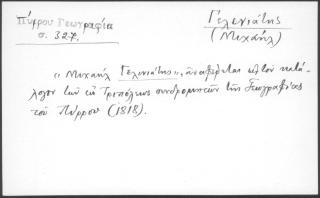 Πύρρου Γεωγραφία
σ. 327.
Γελενιάτης
(Μιχαήλ)
«Μιχαήλ Γελενιάτης», ἀναφέρεται εἰς τὸν κατά-
λογον τῶν ἐκ Τριπόλεως συνδρομητῶν τῆς Γεωγραφίας
τοῦ Πύρρου (1818).